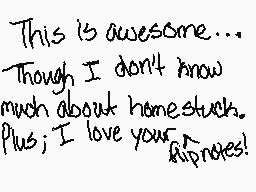 This is awesome...
Though I don't know
much about homestuck.
Plus; I love your flipnotes!